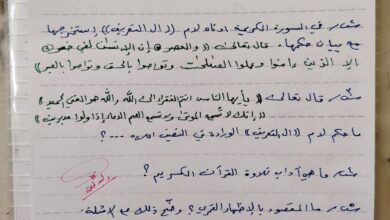 س١/ في السورة الكريمة ادناه لام (( ال التعريف )) استخرجها
مع بيان حكمها. قال تعالى (( والعصر ان الإنسان لفي خسر
إلا الذين ءامنوا وعملوا الصلحت وتواصوا بالحق وتواصوا بالصبر ))
س٢/ قال تعالى (( يأيها الناس انتم الفقراء الى الله والله هو الغني الحميد ))
(( إنك لا تسمع الموتى ولا تسمع الصم الدعاء إذا ولوا مدبرين ))
ما حكم لام (( ال التعريف )) الواردة في النصين اعلاه ---؟
س٣/ ما هي آداب تلاوة القرآن الكريم؟
س٤/ ما المقصود بالإظهار القمري؟ وضح ذلك مع الامثلة.